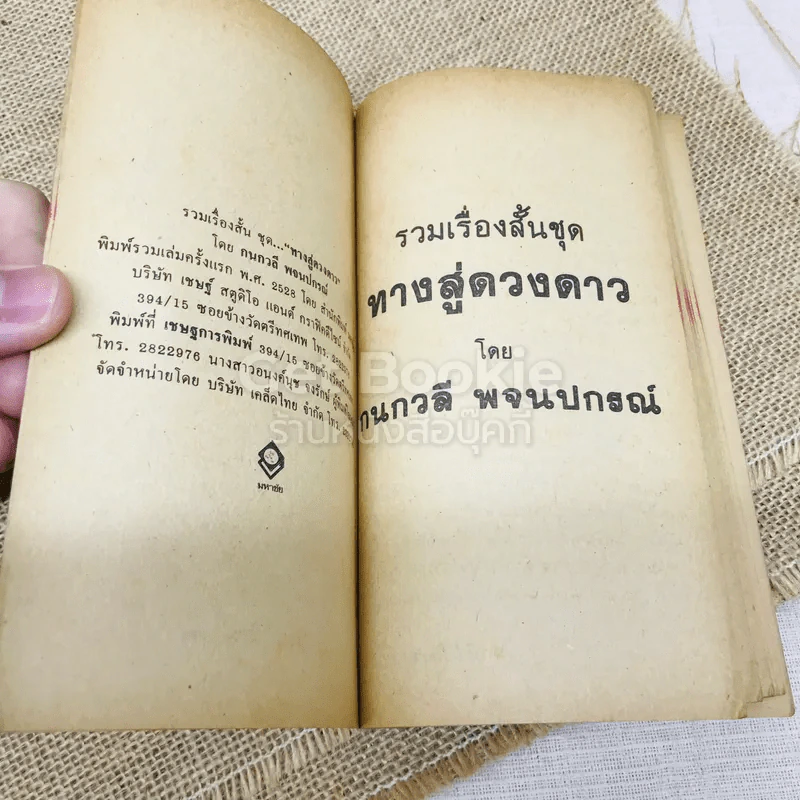 รวมเรื่องสั้น ชุด..."ทางสู่ดวงดาว"
โดย กนกวลี พจนปกรณ์
พิมพ์รวมเล่มครั้งแรก พ.ศ. 2528 โดย สำนักพิมพ์
บริษัท เชษฐ์ สตูดิโอ แอนด์ กราฟิคดีไซน์ จำกัด
394/15 ซอยข้างวัดตรีทศเทพ โทร.
พิมพ์ที่ เชษฐการพิมพ์ 394/15 ซอยข้างวัดตรีทศเทพ
โทร. 2822976 นางสาวอนงค์นุช จงรักษ์
จัดจำหน่ายโดย บริษัท เคล็ดไทย จำกัด โทร.
มหาชัย
รวมเรื่องสั้นชุด
ทางสู่ดวงดาว
โดย
กนกวลี พจนปกรณ์
Get Bookie
ร้านหนังสือบุ๊คกี้